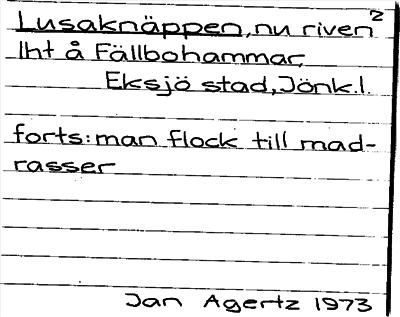 Lusaknäppen, nu riven 2
lht å Fällbohammar,
Eksjö stad, Jönk.l.
forts: man flock till mad-
rasser
Jan Agertz 1973